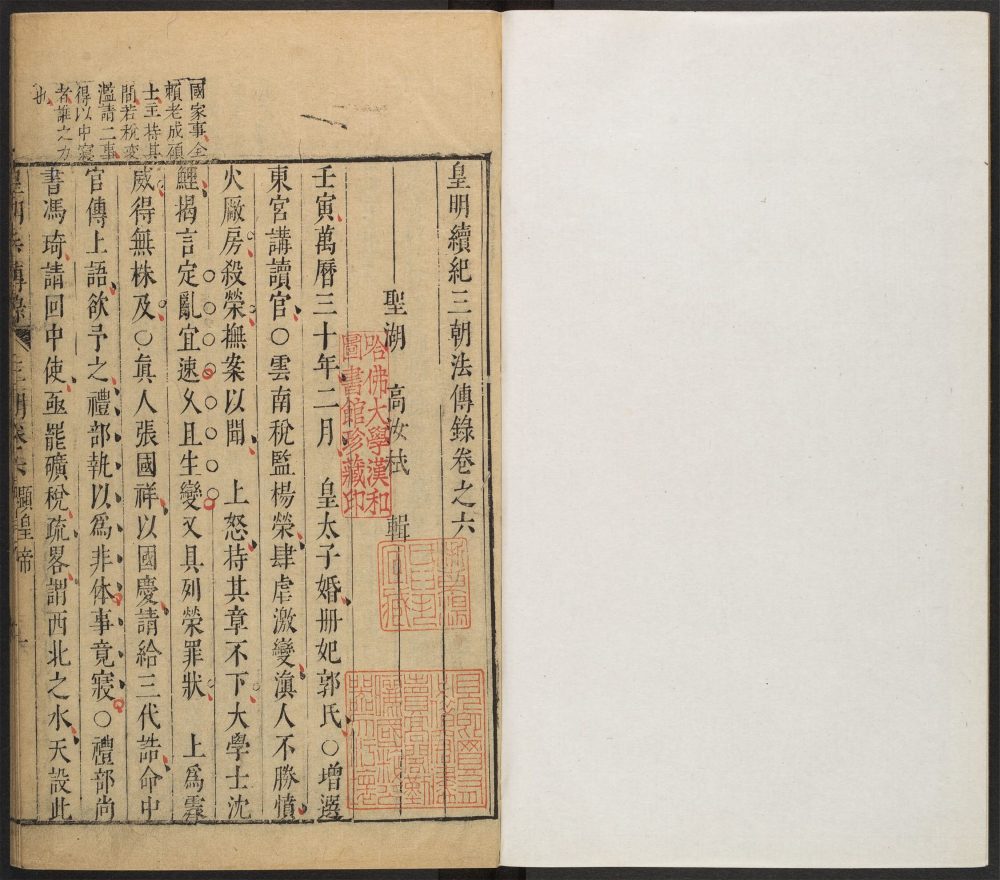 皇明續紀三朝法傳錄卷之六
聖湖 高汝栻 輯
哈佛大學漢和
圖書館珍藏印
壬寅萬曆三十年二月 皇太子婚冊妃郭氏○增選
東宮講讀官○雲南稅監楊榮肆虐激變滇人不勝憤
火廠房殺榮撫案以聞 上怒持其章不下大學士沈
鯉揭言定亂宜速久且生變又具列榮罪狀 上爲霽
威得無株及○眞人張國祥以國慶請給三代誥命中
官傳上語欲予之禮部執以爲非体事竟寢○禮部尚
書馮琦請回中使亟罷礦稅疏畧謂西北之水天設此
國家事全
賴老成碩
士主持其
間若稅變
濫請二事
得以中寢
者誰之力
也
皇明法傳錄 三朝卷六 顯皇帝 一